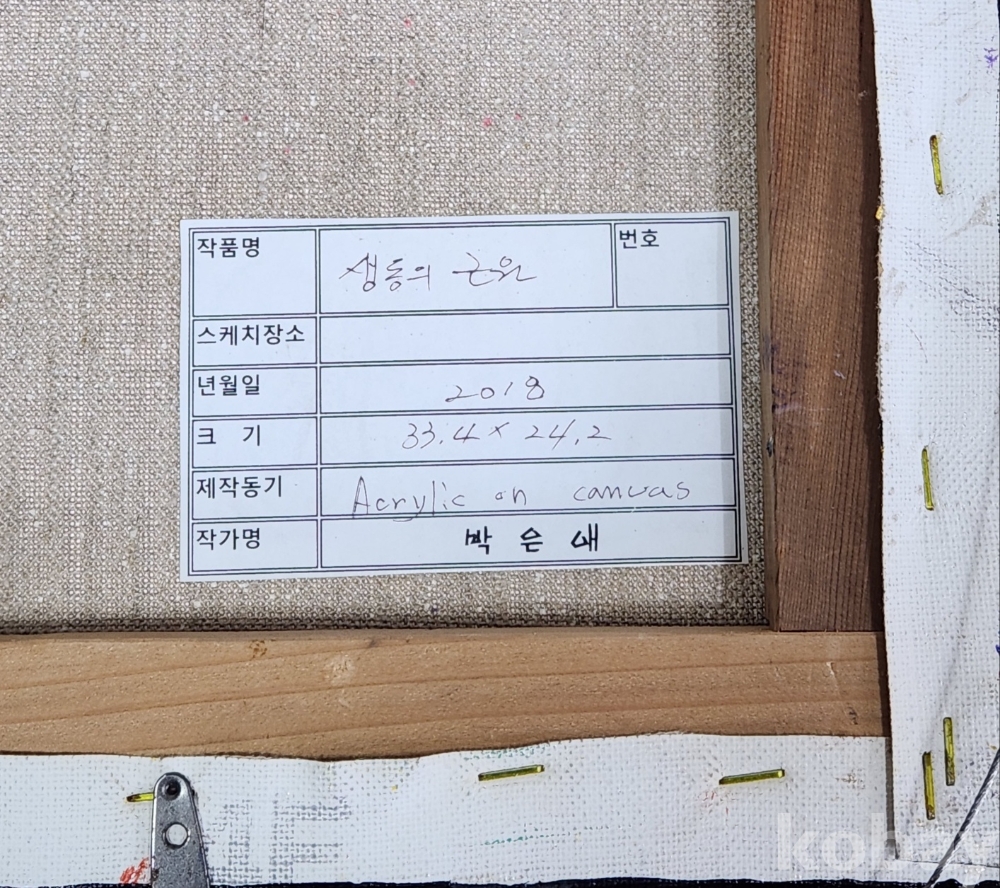 작품명 생동의 근원 번호
스케치장소
년월일 2018
크 기 33.4 × 24.2
제작동기 Acrylic on canvas
작가명 박 은 새
kobay